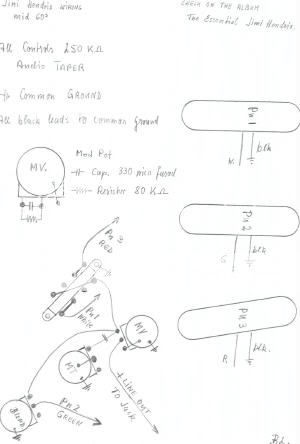 Jimi Hendrix WIRING
mid 60s
CHECK ON THE ALBUM
The Essential Jimi Hendrix.
All Controls 250 KΩ
Audio TAPER
Common GROUND
All black leads to common ground
MV.
Mod Pot
Cap. 330 mico farad
Resistor 80 KΩ
PU1
blk
W.
PU2
blk
G
PU3
blk.
R.
PU 3
RED
PU1
WHITE
MV
MT
BLEND
PU2
GREEN
+ LINE OUT
TO Jack